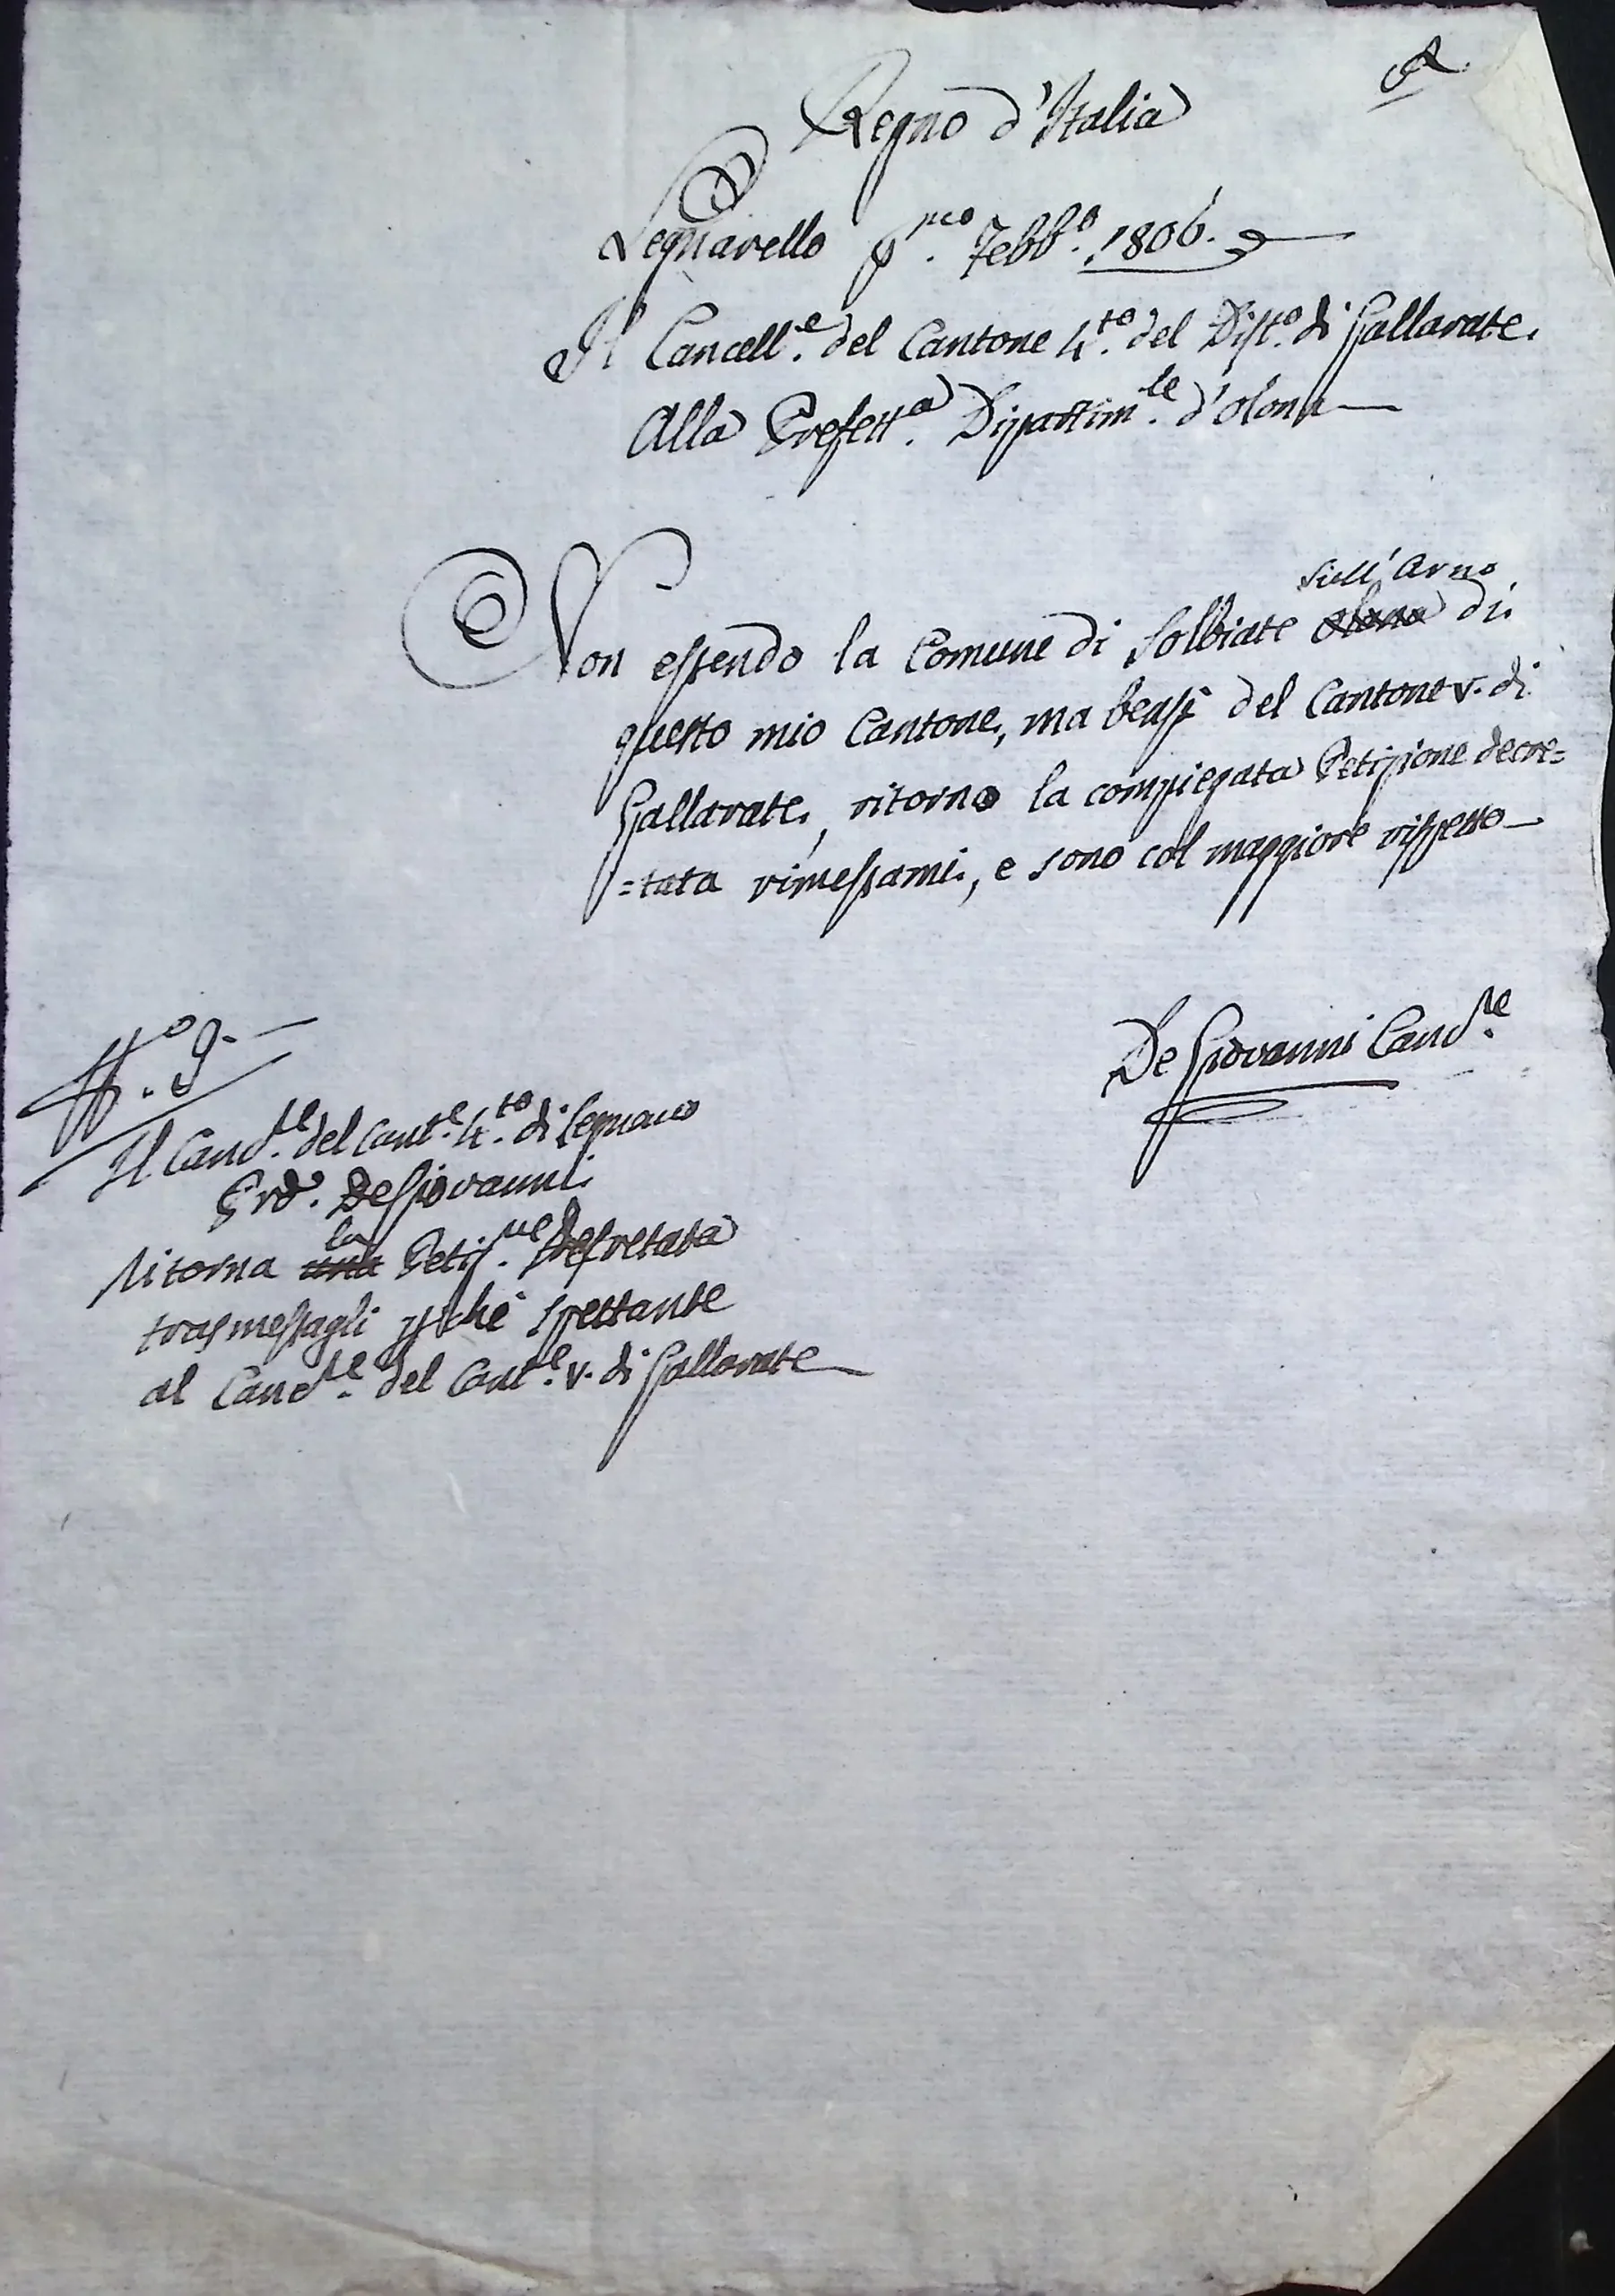 A
Regno d'Italia
Legnarello p.mo Febb.o 1806.
Il Cancell.e del Cantone 4.to del Dist.o di Gallarate.
Alla Prefett.a Dipartim.le d'Olona
sull'Arno
Non essendo la Comune di Solbiate Olona di
questo mio Cantone, ma bensì del Cantone V. di
Gallarate, ritorno la compiegata Petizione decre=
=tata rimessami, e sono col maggiore rispetto
De Giovanni Canc.re
N.o 9.
Il Canc.re del Cant.e 4.to di Legnano
De Giovanni
la
ritorna una Petiz.ne Decretata
trasmessagli perchè spettante
al Canc.re del Cant.e V. di Gallarate